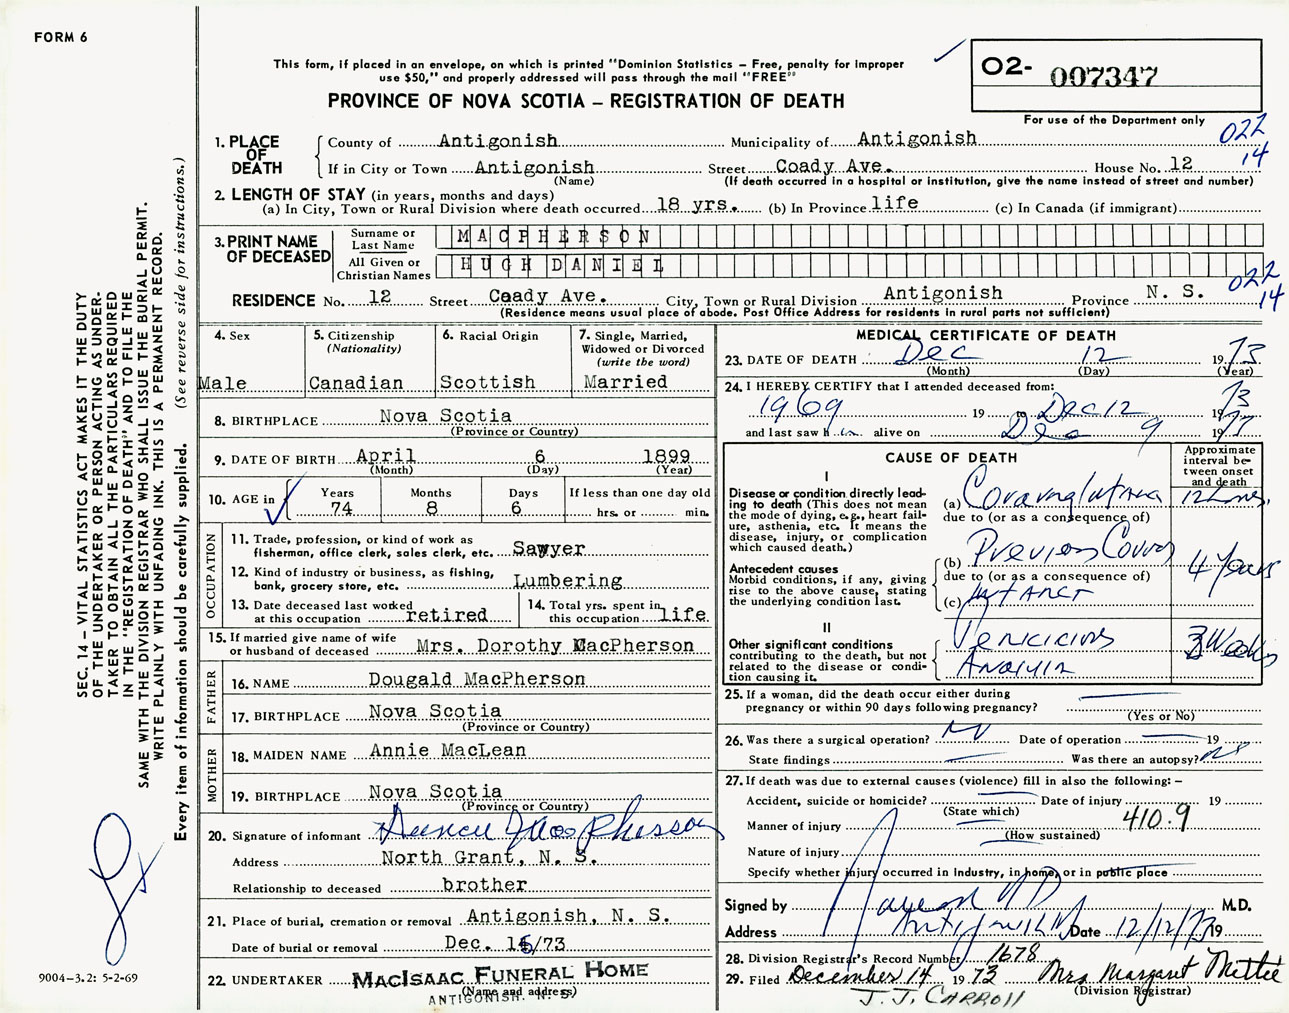 FORM 6
This form, if placed in an envelope, on which is printed "Dominion Statistics – Free, penalty for improper
use $50," and properly addressed will pass through the mail "FREE"
PROVINCE OF NOVA SCOTIA – REGISTRATION OF DEATH
O2- 007347
For use of the Department only
022
14
1. PLACE OF DEATH
County of Antigonish Municipality of Antigonish
If in City or Town Antigonish Street Coady Ave. House No. 12
(Name) (If death occurred in a hospital or institution, give the name instead of street and number)
2. LENGTH OF STAY (in years, months and days)
(a) In City, Town or Rural Division where death occurred 18 yrs. (b) In Province life (c) In Canada (if immigrant)
3. PRINT NAME OF DECEASED
Surname or Last Name MACPHERSON
All Given or Christian Names HUGH DANIEL
022
14
RESIDENCE No. 12 Street Coady Ave. City, Town or Rural Division Antigonish Province N. S.
(Residence means usual place of abode. Post Office Address for residents in rural parts not sufficient)
4. Sex
Male
5. Citizenship
(Nationality)
Canadian
6. Racial Origin
Scottish
7. Single, Married,
Widowed or Divorced
(write the word)
Married
8. BIRTHPLACE Nova Scotia
(Province or Country)
9. DATE OF BIRTH April 6 1899
(Month) (Day) (Year)
10. AGE in Years Months Days If less than one day old
74 8 6 hrs. or min.
OCCUPATION
11. Trade, profession, or kind of work as
fisherman, office clerk, sales clerk, etc. Sawyer
12. Kind of industry or business, as fishing,
bank, grocery store, etc. Lumbering
13. Date deceased last worked
at this occupation retired
14. Total yrs. spent in
this occupation life
15. If married give name of wife
or husband of deceased Mrs. Dorothy MacPherson
FATHER
16. NAME Dougald MacPherson
17. BIRTHPLACE Nova Scotia
(Province or Country)
MOTHER
18. MAIDEN NAME Annie MacLean
19. BIRTHPLACE Nova Scotia
(Province or Country)
20. Signature of informant
Address North Grant, N. S.
Relationship to deceased brother
21. Place of burial, cremation or removal Antigonish, N. S.
Date of burial or removal Dec. 15/73
22. UNDERTAKER MACISAAC FUNERAL HOME
(Name and address)
ANTIGONISH. N. S
MEDICAL CERTIFICATE OF DEATH
23. DATE OF DEATH Dec 12 1973
(Month) (Day) (Year)
24. I HEREBY CERTIFY that I attended deceased from:
1969 19 to Dec 12 1973
and last saw h im alive on Dec 9 19
CAUSE OF DEATH
Approximate
interval be-
tween onset
and death
I
Disease or condition directly lead-
ing to death (This does not mean
the mode of dying, e.g., heart fail-
ure, asthenia, etc. It means the
disease, injury, or complication
which caused death.)
(a) 12 hrs.
due to (or as a consequence of)
Antecedent causes
Morbid conditions, if any, giving
rise to the above cause, stating
the underlying condition last.
(b) Previous 4 Years
due to (or as a consequence of)
(c) Infarct
II
Other significant conditions
contributing to the death, but not
related to the disease or condi-
tion causing it.
Pernicious 3 Weeks
25. If a woman, did the death occur either during
pregnancy or within 90 days following pregnancy?
(Yes or No)
26. Was there a surgical operation? No Date of operation 19
State findings Was there an autopsy? no
27. If death was due to external causes (violence) fill in also the following: –
Accident, suicide or homicide? Date of injury 19
(State which)
Manner of injury 410.9
(How sustained)
Nature of injury
Specify whether injury occurred in industry, in home, or in public place
Signed by M.D.
Address Antigonish Date 12/12/73 19
28. Division Registrar's Record Number 1678
29. Filed December 14 1973 Mrs Margaret
(Division Registrar)
J. J. CARROLL
SEC. 14 – VITAL STATISTICS ACT MAKES IT THE DUTY
OF THE UNDERTAKER OR PERSON ACTING AS UNDER-
TAKER TO OBTAIN ALL THE PARTICULARS REQUIRED
IN THE "REGISTRATION OF DEATH" AND TO FILE THE
SAME WITH THE DIVISION REGISTRAR WHO SHALL ISSUE THE BURIAL PERMIT.
WRITE PLAINLY WITH UNFADING INK. THIS IS A PERMANENT RECORD.
Every item of information should be carefully supplied. (See reverse side for instructions.)
9004-3.2: 5-2-69